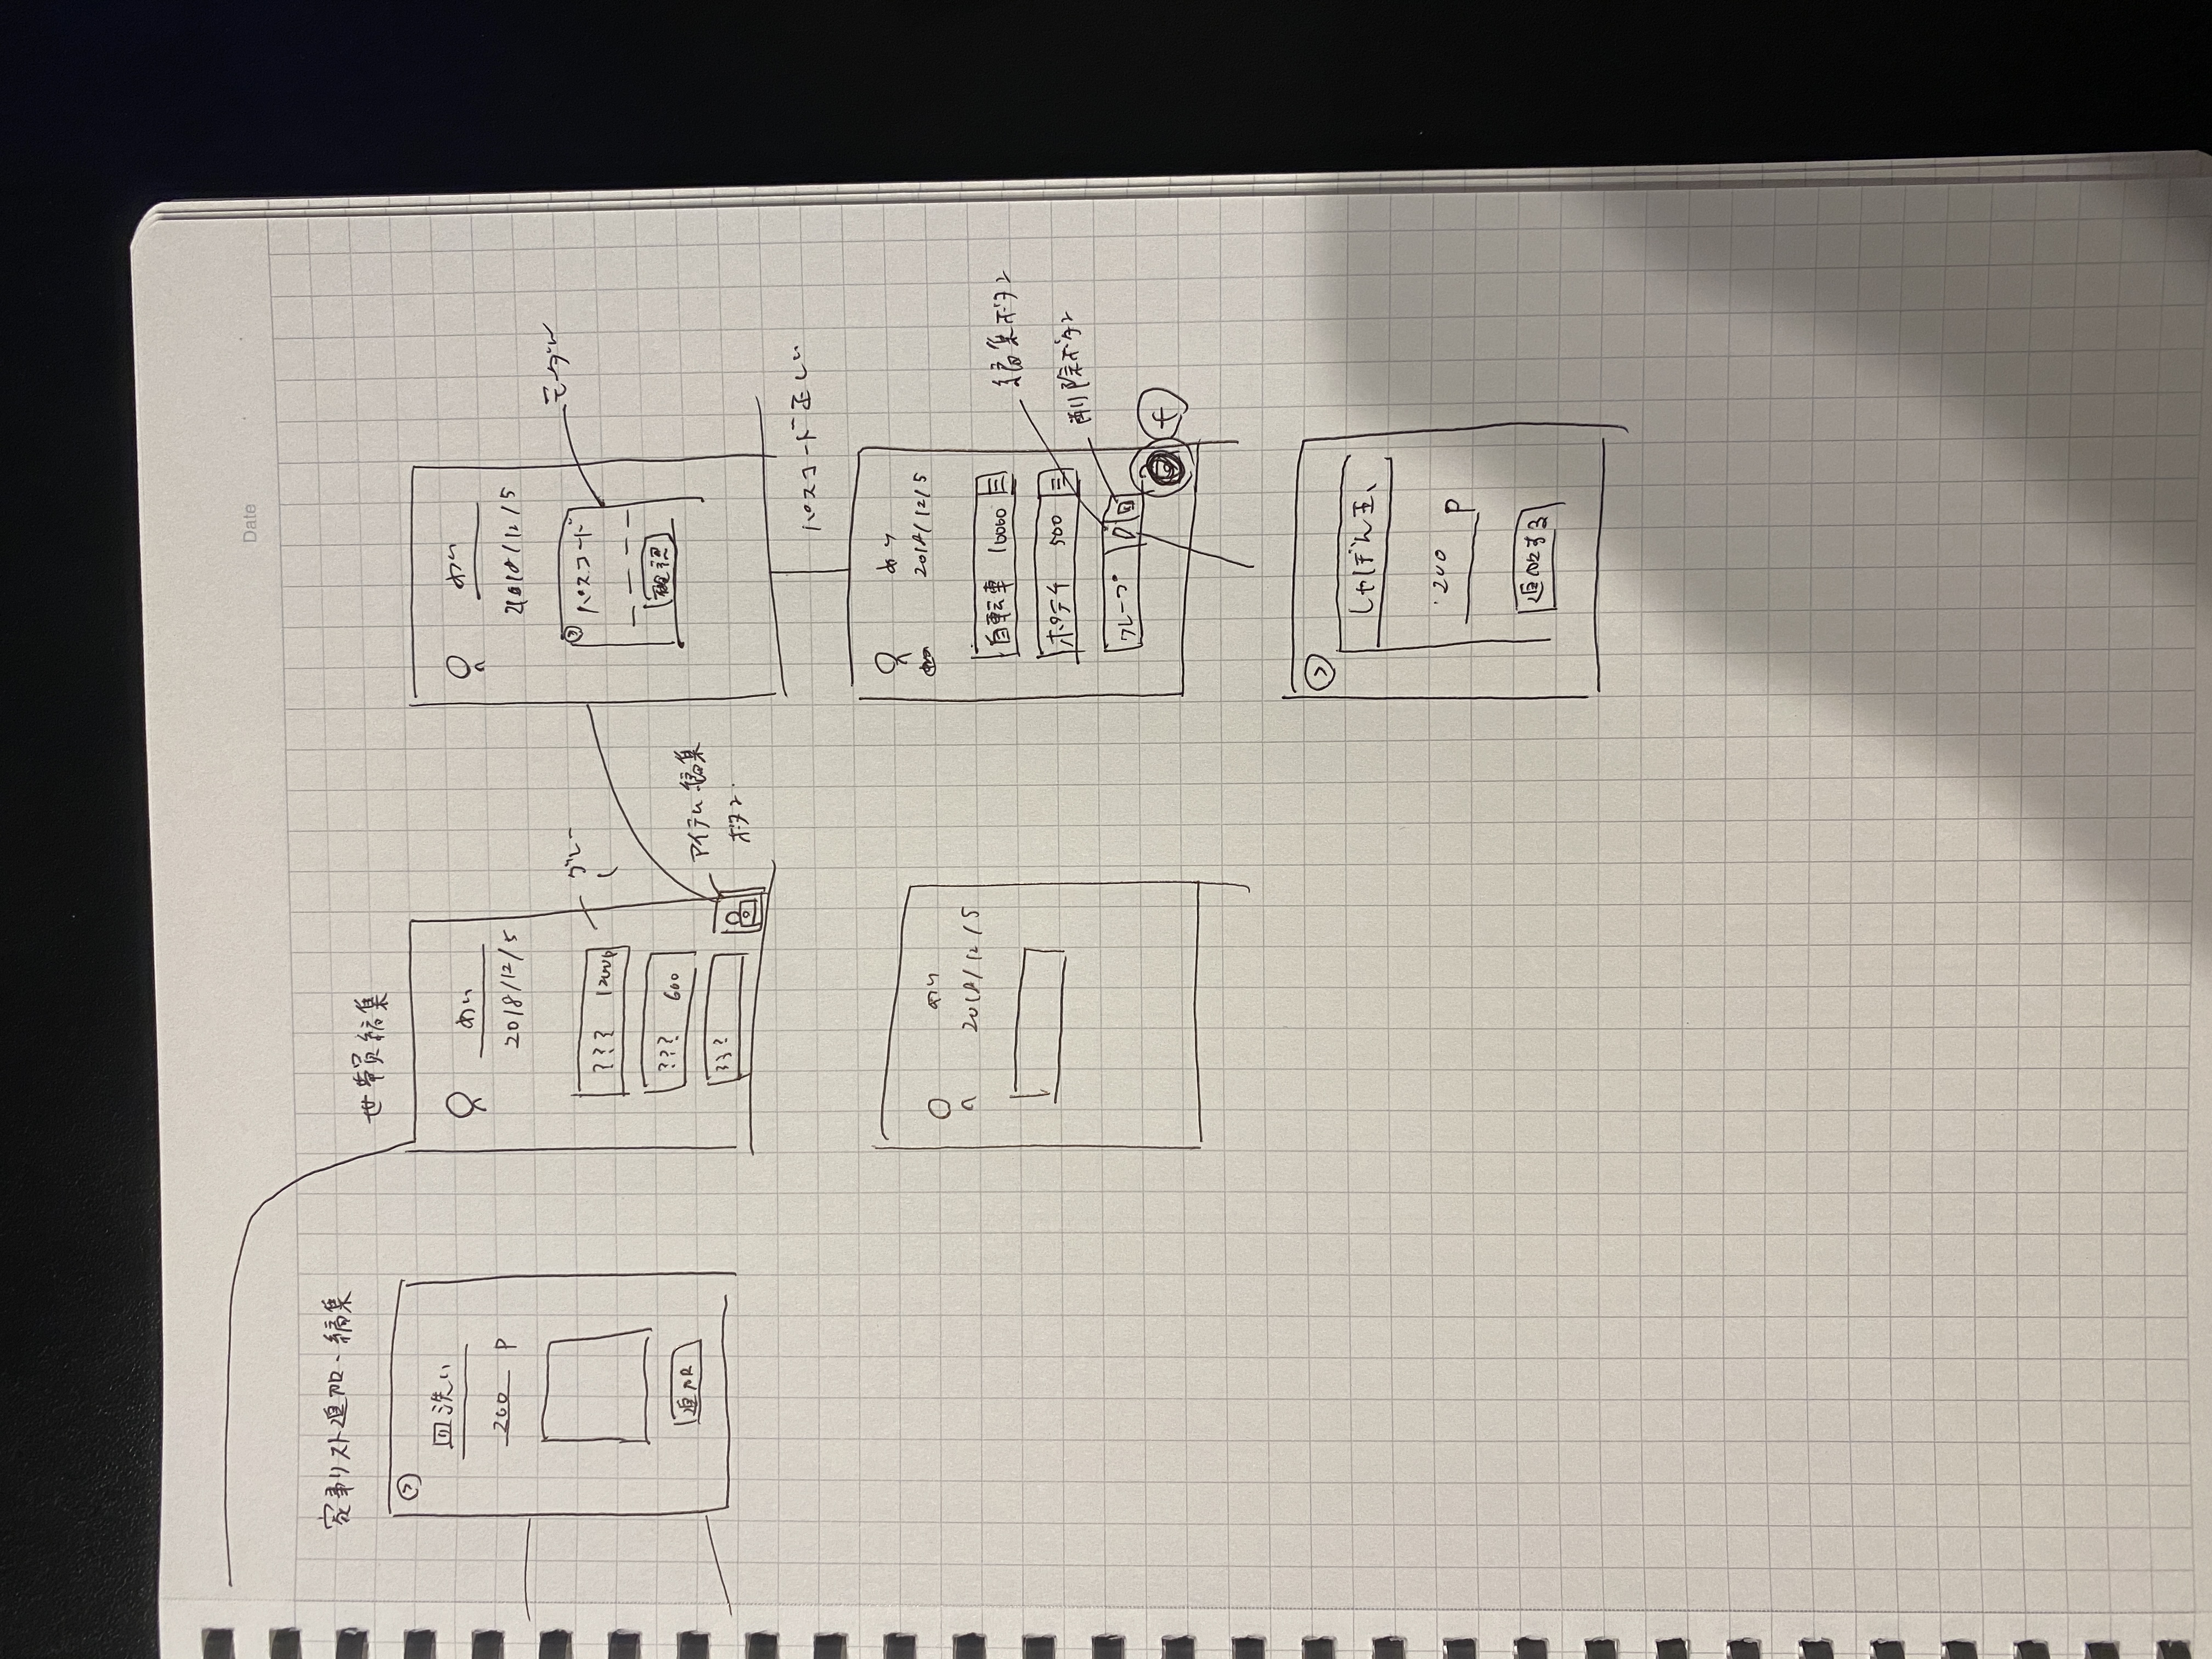 Date
家事リスト追加・編集
皿洗い
200 P
追加
世帯員編集
めい
2018/12/5
??? 12000p
??? 600
???
グレー
アイテム編集
ボタン
めい
2018/12/5
パスコード
確認
モーダル
パスコード正しい
めい
2018/12/5
めい
2018/12/5
自転車 10000
ポテチ 500
クレープ
編集ボタン
削除ボタン
+
しゃぼん玉
200 P
追加する